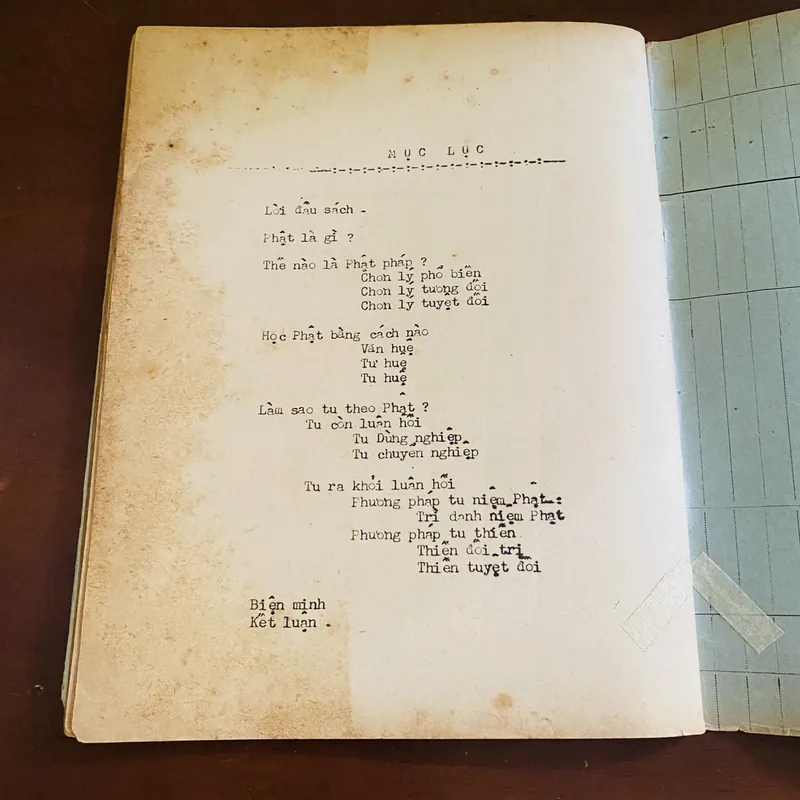 MỤC LỤC
Lời đầu sách .
Phật là gì ?
Thế nào là Phật pháp ?
Chơn lý phổ biến
Chơn lý tương đối
Chơn lý tuyệt đối
Học Phật bằng cách nào
Văn huệ
Tư huệ
Tu huệ
Làm sao tu theo Phật ?
Tu còn luân hồi
Tu Dừng nghiệp
Tu chuyển nghiệp
Tu ra khỏi luân hồi
Phương pháp tu niệm Phật :
Trì danh niệm Phật
Phương pháp tu thiền
Thiền đối trị
Thiền tuyệt đối
Biện minh
Kết luận .